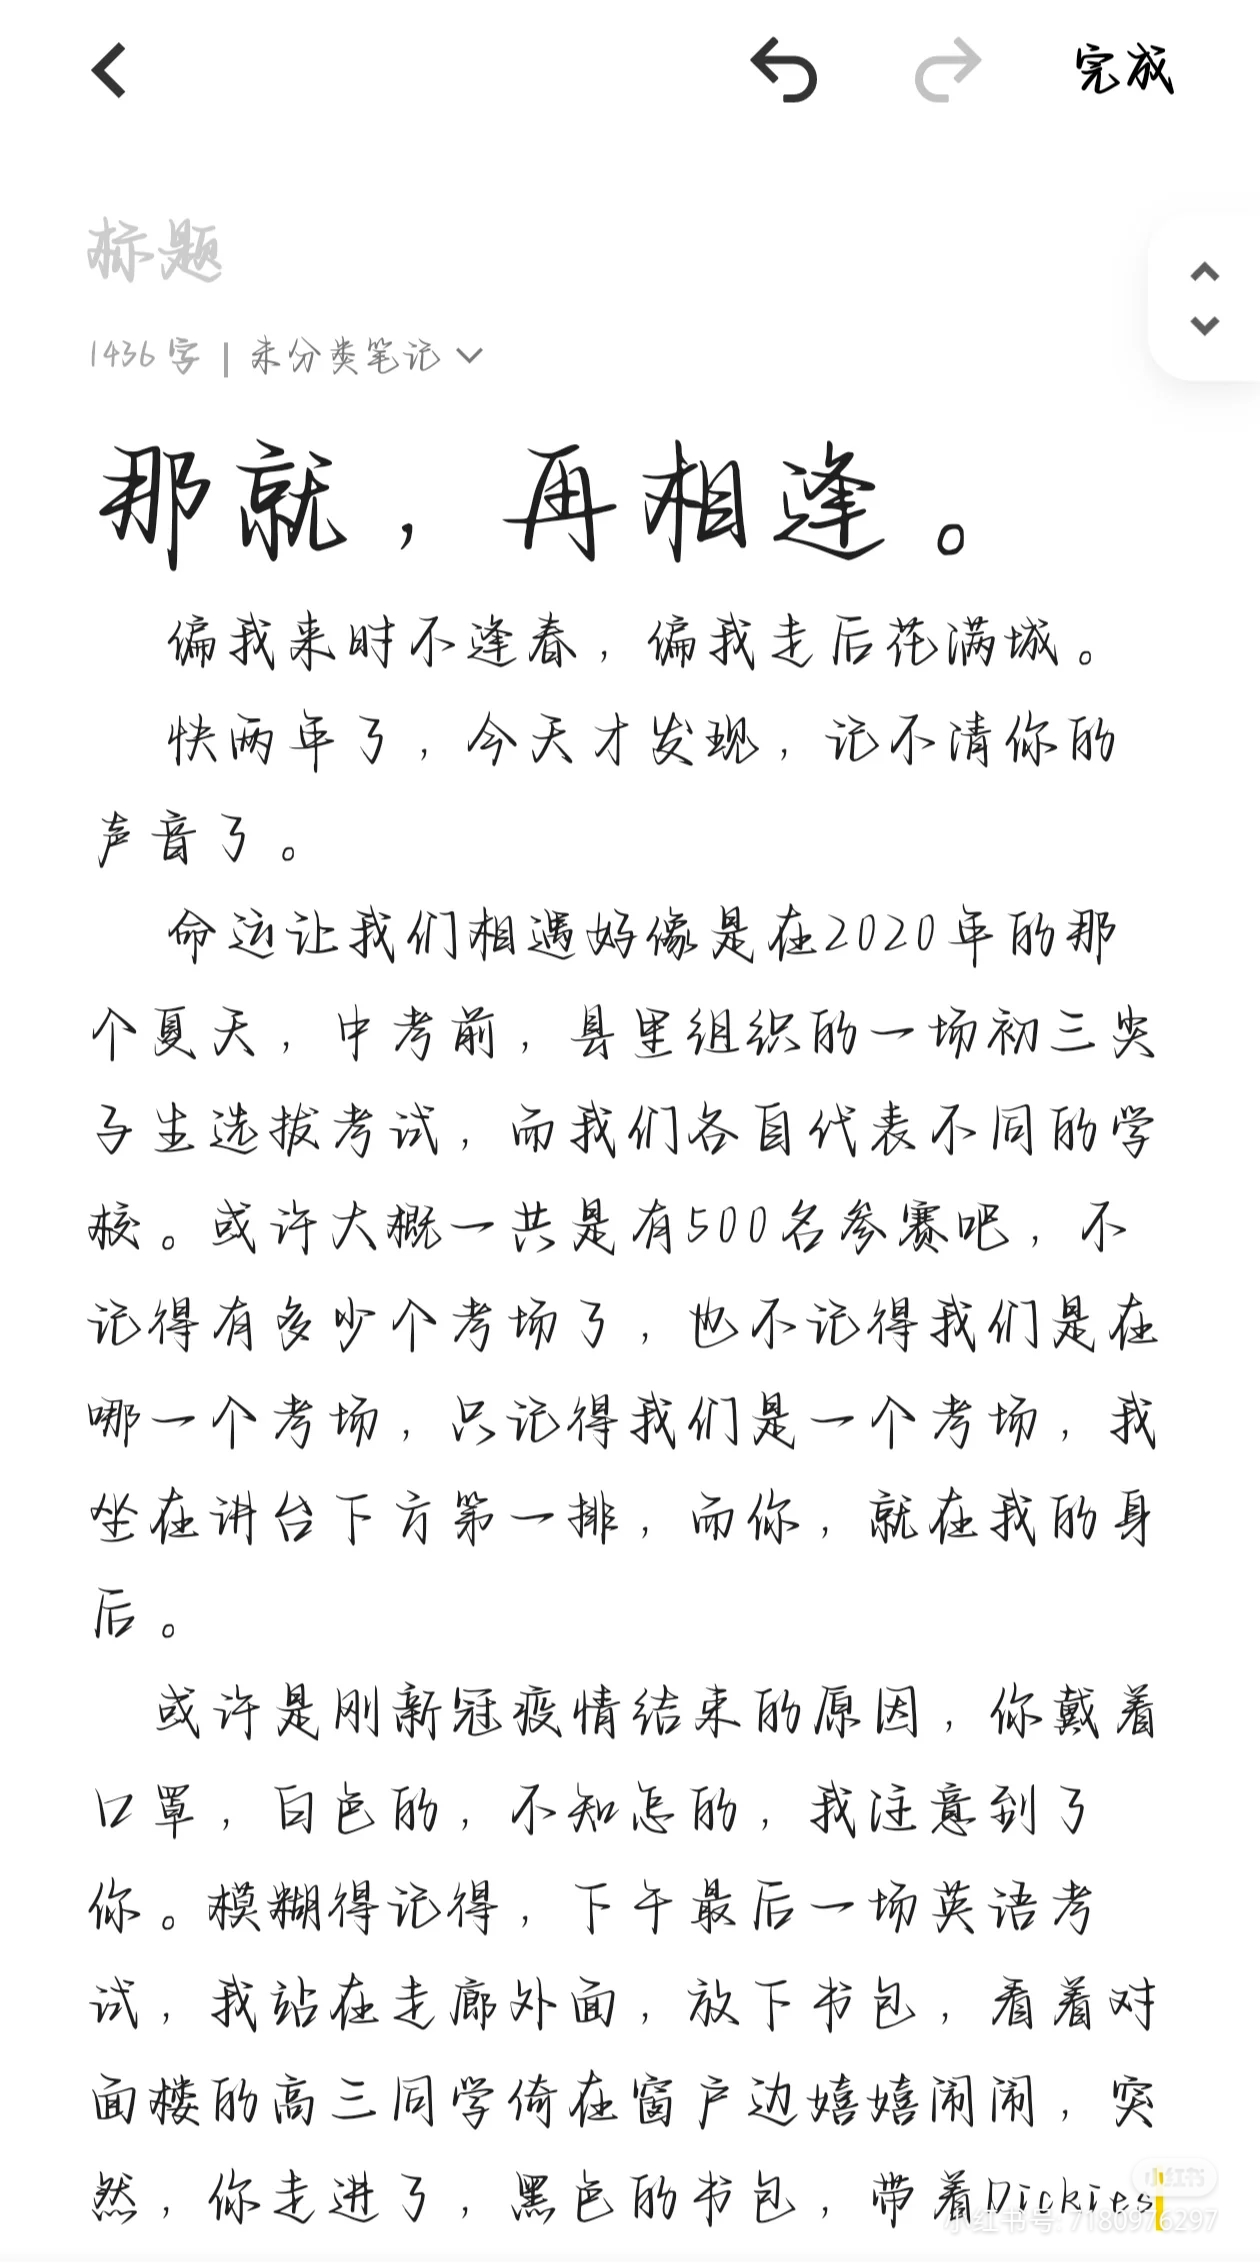 完成
标题
1436字 | 未分类笔记
那就，再相逢。
偏我来时不逢春，偏我走后花满城。
快两年了，今天才发现，记不清你的
声音了。
命运让我们相遇好像是在2020年的那
个夏天，中考前，县里组织的一场初三尖
子生选拔考试，而我们各自代表不同的学
校。或许大概一共是有500名参赛吧，不
记得有多少个考场了，也不记得我们是在
哪一个考场，只记得我们是一个考场，我
坐在讲台下方第一排，而你，就在我的身
后。
或许是刚新冠疫情结束的原因，你戴着
口罩，白色的，不知怎的，我注意到了
你。模糊得记得，下午最后一场英语考
试，我站在走廊外面，放下书包，看着对
面楼的高三同学倚在窗户边嬉嬉闹闹，突
然，你走进了，黑色的书包，带着Dickies
小红书
小红书号: 7180976297